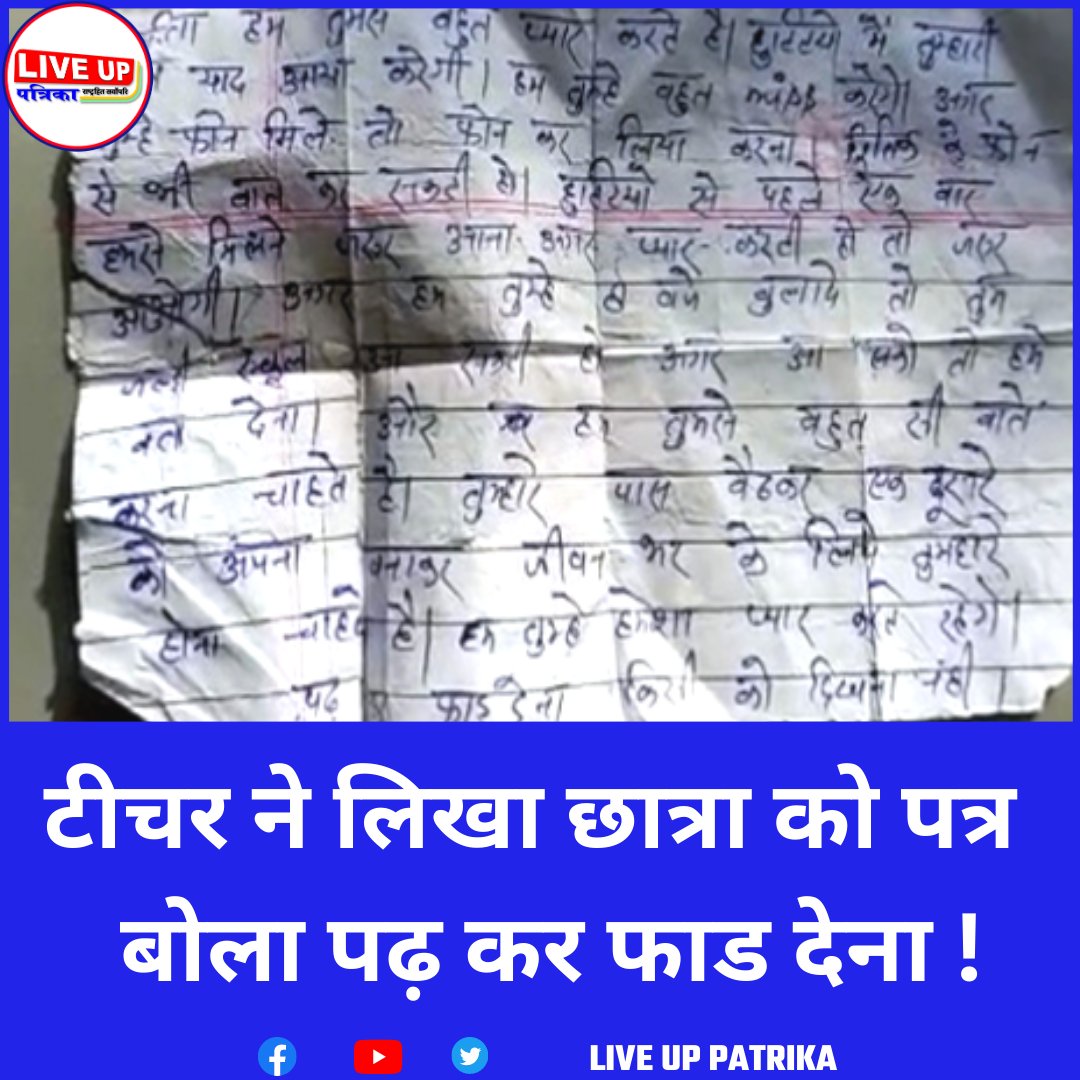 LIVE UP
पत्रिका राष्ट्रहित सर्वोपरि
हम तुमसे बहुत प्यार करते है। छुट्टियो में तुम्हारी
याद आया करेगी। हम तुम्हे बहुत करेगे। अगर
तुम्हे फोन मिले तो फोन कर लिया करना। के फोन
से भी बाते कर सकती हो। छुट्टियो से पहले एक बार
हमसे मिलने जरूर आना अगर प्यार करती हो तो जरूर
आओगी। अगर हम तुम्हे 8 बजे बुलाये तो तुम
जल्दी स्कूल आ सकती हो अगर आ सको तो हमे
बता देना। और हम तुमसे बहुत सी बाते
करना चाहते है। तुम्हारे पास बैठकर एक दूसरे
को अपना बनाकर जीवन भर के लिये तुमहारे
होना चाहते है। हम तुम्हे हमेशा प्यार करते रहेगे।
पढ़ फाड देना किसी को दिखाना नही।
टीचर ने लिखा छात्रा को पत्र
बोला पढ़ कर फाड देना !
LIVE UP PATRIKA